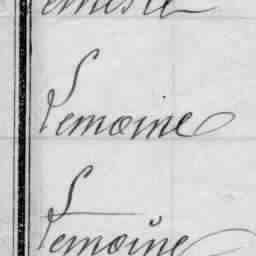 Lemoine
Lemoine